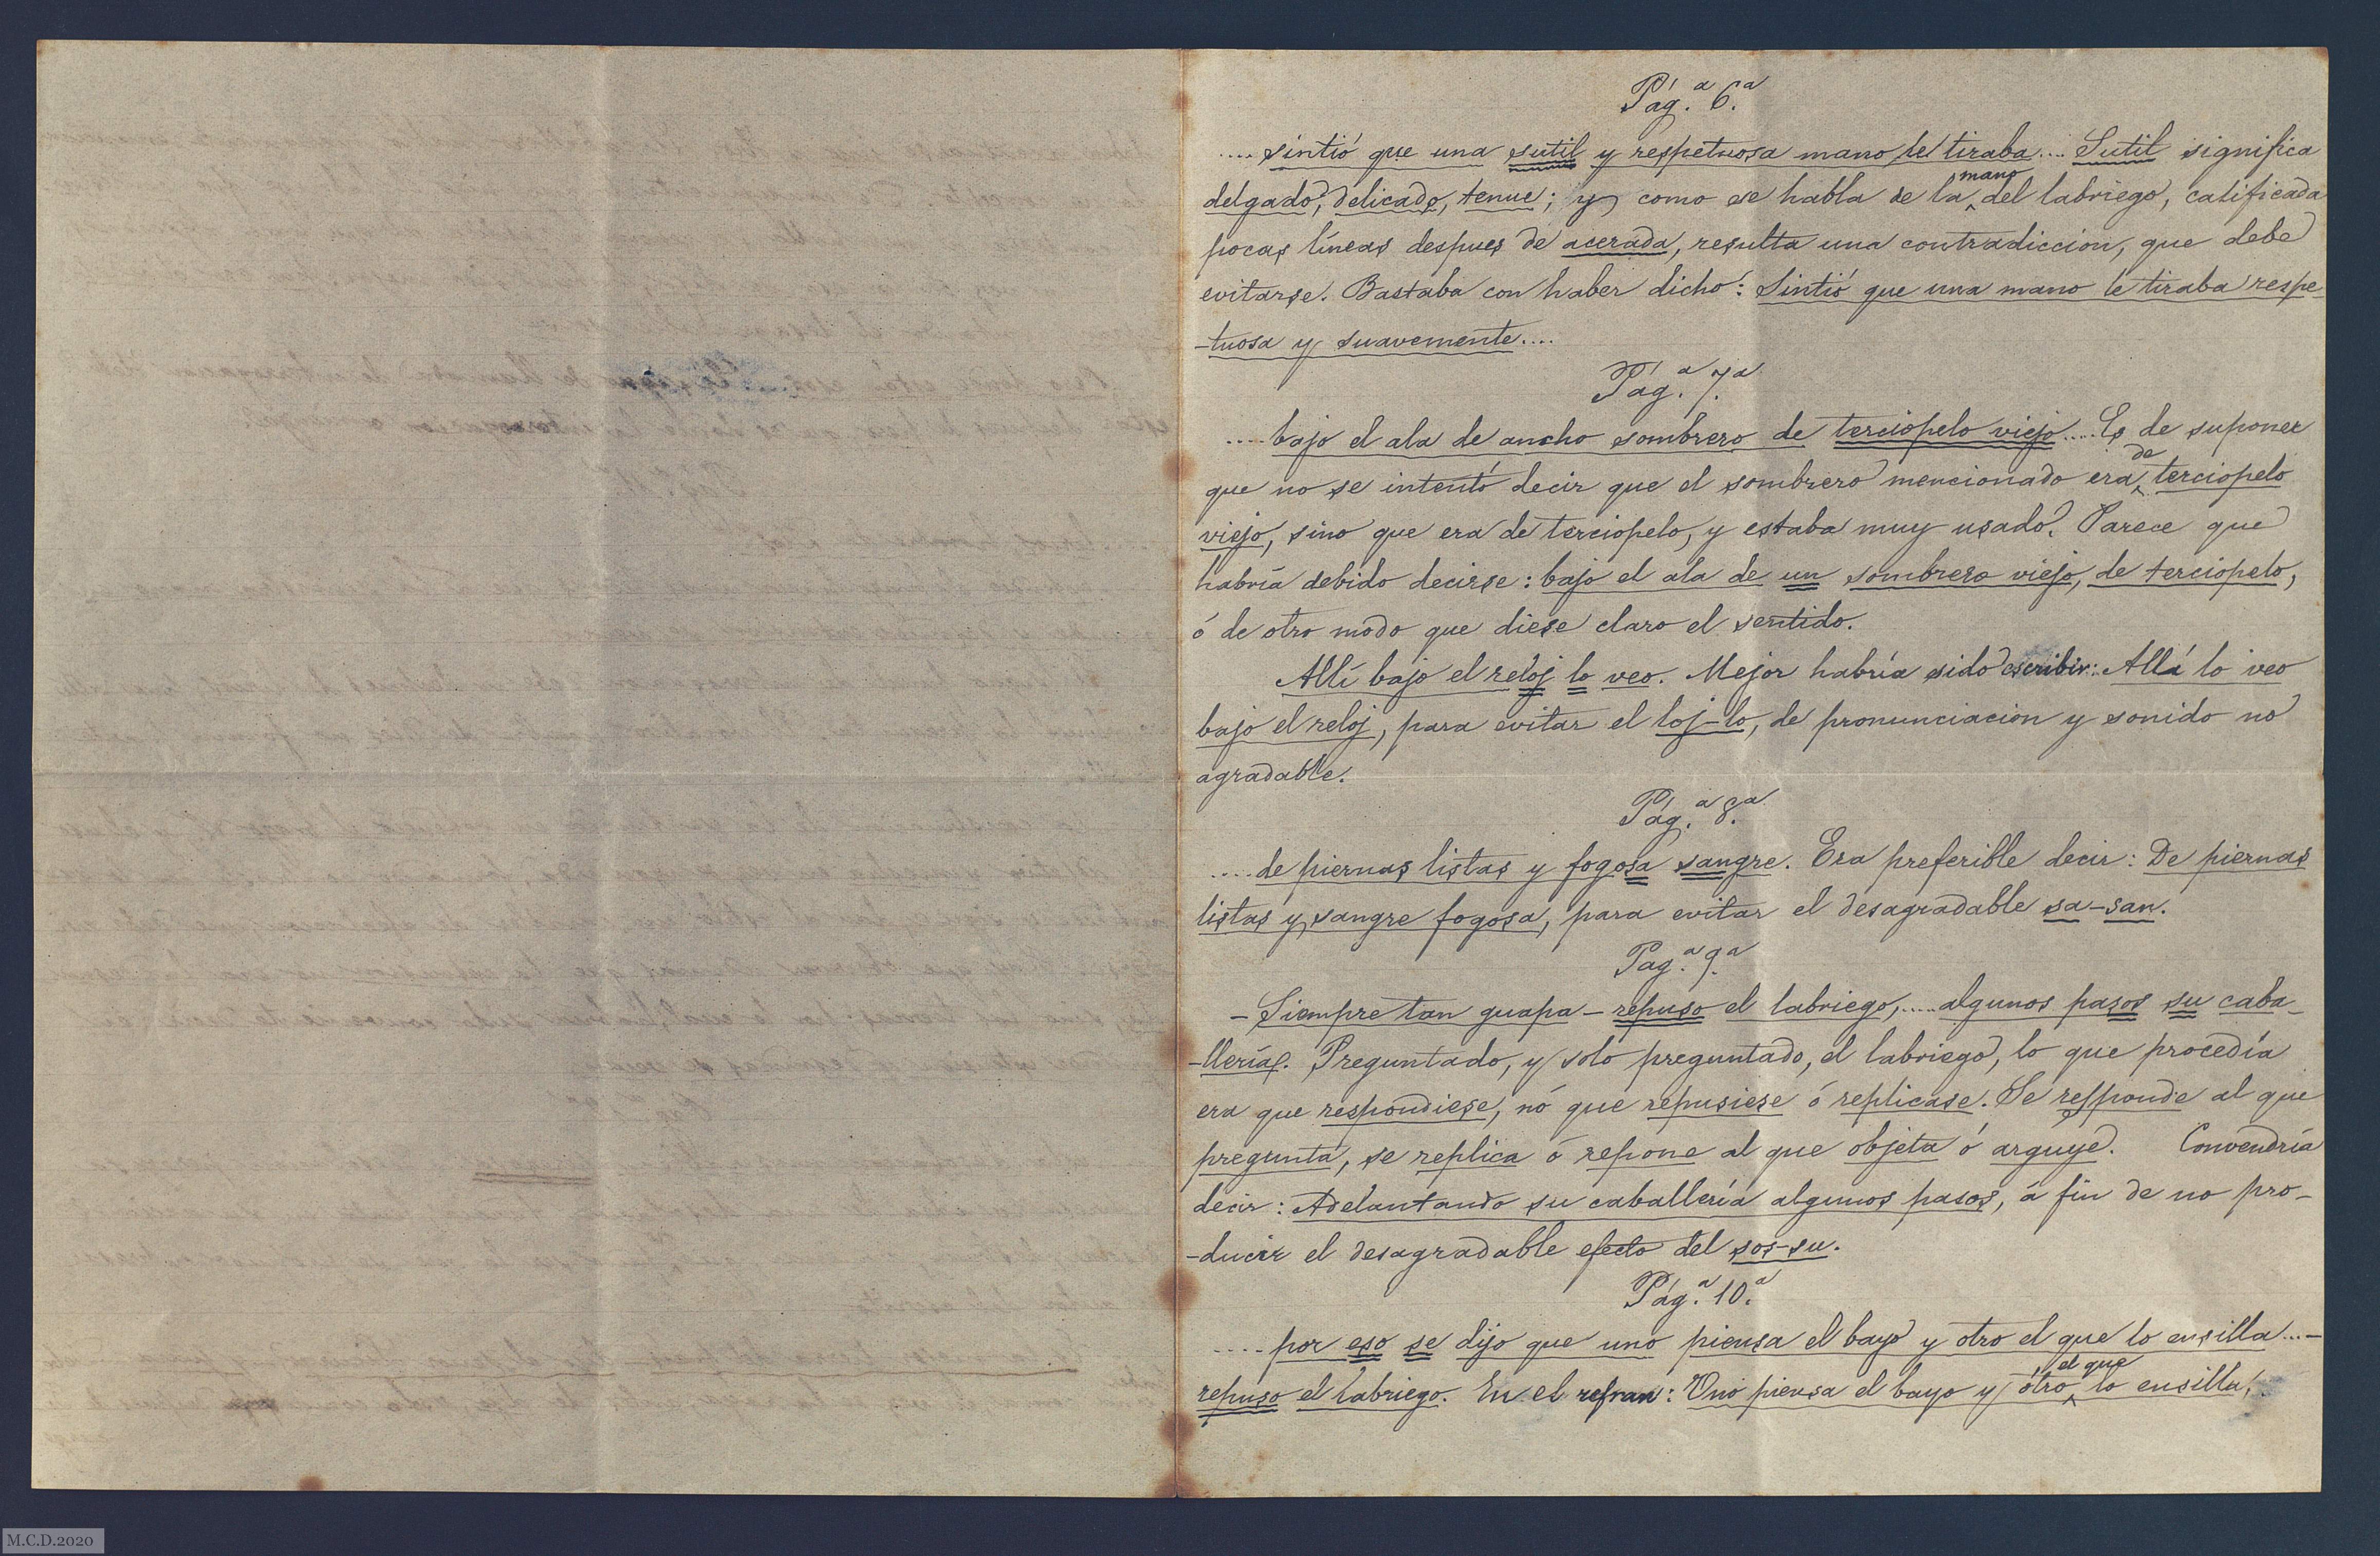 Pág.ª 6.ª
....sintió que una sutil y respetuosa mano le tiraba.... Sutil significa
delgado, delicado, tenue; y como se habla de la mano del labriego, calificada
pocas líneas despues de acerada, resulta una contradiccion, que debe
evitarse. Bastaba con haber dicho: Sintió que una mano le tiraba respe-
-tuosa y suavemente....
Pág.ª 7.ª
....bajo el ala de ancho sombrero de terciopelo viejo.... Es de suponer
que no se intentó decir que el sombrero mencionado era de terciopelo
viejo, sino que era de terciopelo, y estaba muy usado. Parece que
habría debido decirse: bajo el ala de un sombrero viejo, de terciopelo,
ó de otro modo que diese claro el sentido.
Allí bajo el reloj lo veo. Mejor habría sido escribir: Allá lo veo
bajo el reloj, para evitar el loj-lo, de pronunciacion y sonido no
agradable.
Pág.ª 8.ª
....de piernas listas y fogosa sangre. Era preferible decir: De piernas
listas y sangre fogosa, para evitar el desagradable sa-san.
Pag.ª 9.ª
-Siempre tan guapa- repuso el labriego,.... algunos pasos su caba-
-llería. Preguntado, y solo preguntado, el labriego, lo que procedía
era que respondiese, nó que repusiese ó replicase. Se responde al que
pregunta, se replica ó repone al que objeta ó arguye. Convendría
decir: Adelantando su caballería algunos pasos, á fin de no pro-
-ducir el desagradable efecto del sos-su.
Pág.ª 10.ª
....por eso se dijo que uno piensa el bayo y otro el que lo ensilla...-
repuso el labriego. En el refran: Uno piensa el bayo y otro el que lo ensilla,
M.C.D.2020